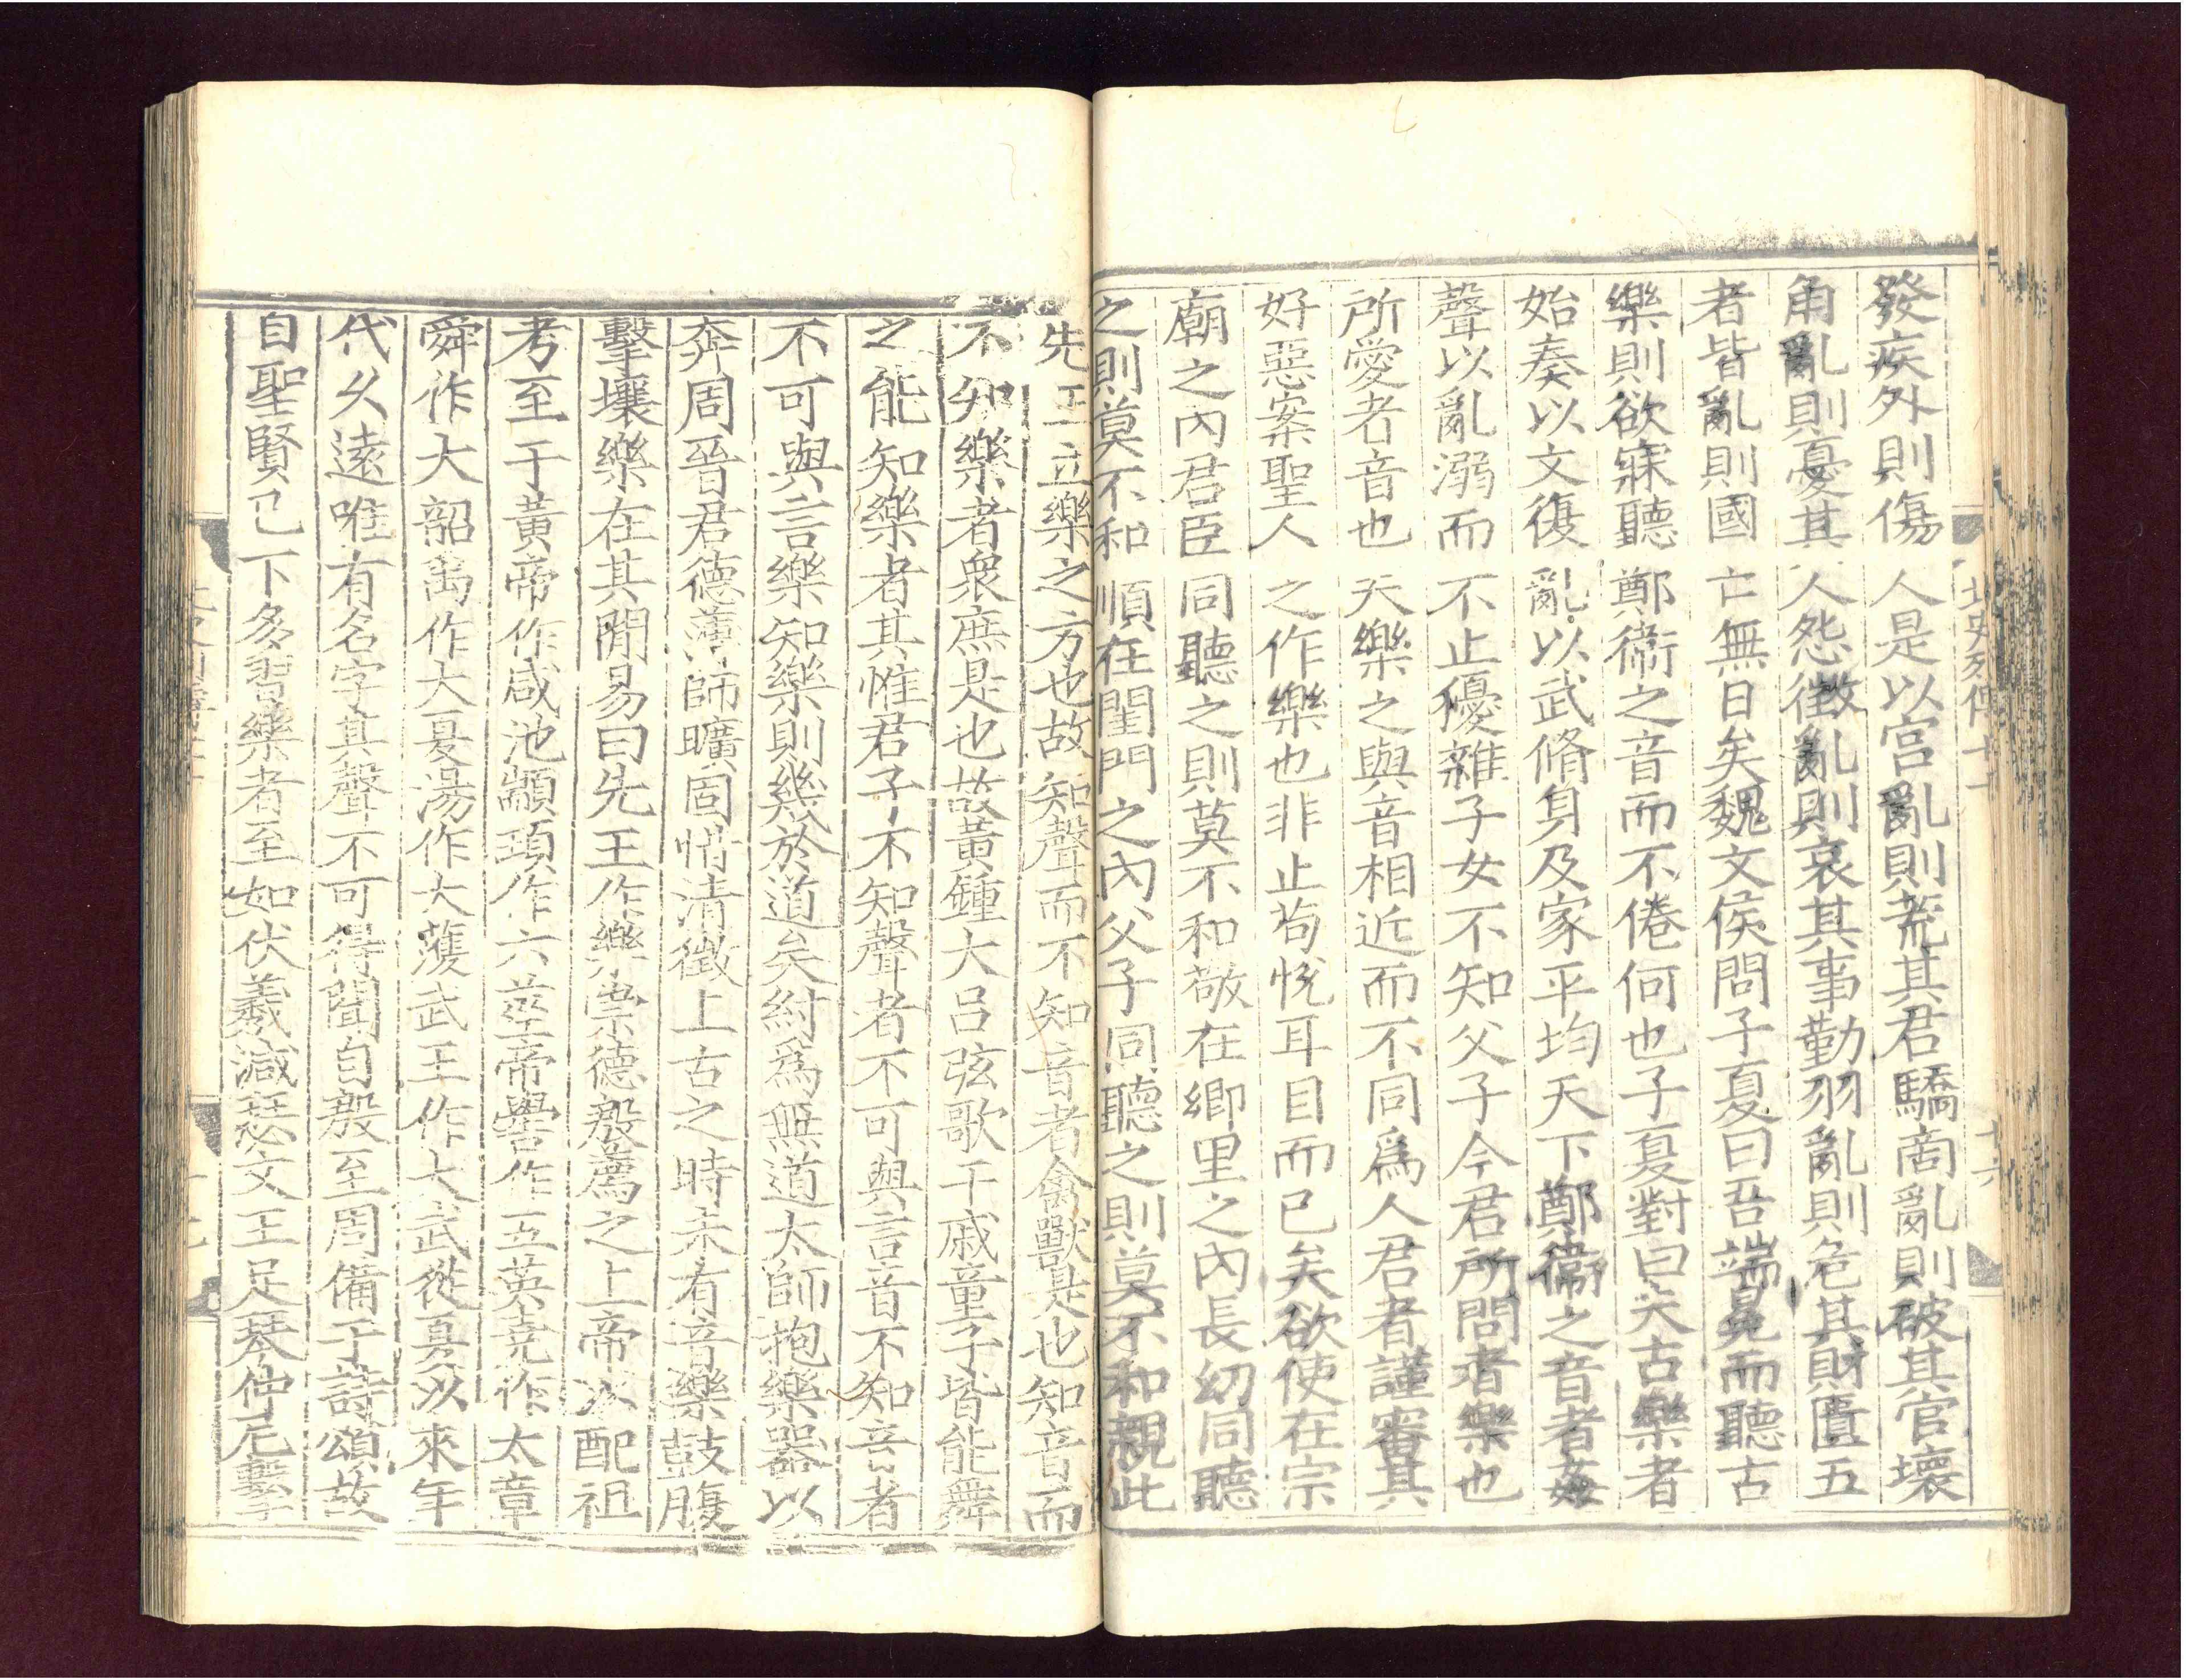 發疾外則傷人是以宮亂則荒其君驕商亂則破其官壞
角亂則憂其人怨徵亂則哀其事勤羽亂則危其財匱五
者皆亂則國亡無日矣魏文侯問子夏曰吾端冕而聽古
樂則欲寐聽鄭衛之音而不倦何也子夏對曰夫古樂者
始奏以文復亂以武脩身及家平均天下鄭衛之音者姦
聲以亂溺而不止獶雜子女不知父子今君所問者樂也
所愛者音也夫樂之與音相近而不同爲人君者謹審其
好惡案聖人之作樂也非止苟悅耳目而已矣欲使在宗
廟之內君臣同聽之則莫不和敬在鄉里之內長幼同聽
之則莫不和順在閨門之內父子同聽之則莫不和親此
北史列傳七十
十六
先王立樂之方也故知聲而不知音者禽獸是也知音而
不知樂者衆庶是也故黃鍾大呂弦歌干戚童子皆能舞
之能知樂者其惟君子不知聲者不可與言音不知音者
不可與言樂知樂則幾於道矣紂爲無道太師抱樂器以
奔周晉君德薄師曠固惜清徵上古之時未有音樂鼓腹
擊壤樂在其閒易曰先王作樂崇德殷薦之上帝以配祖
考至于黃帝作咸池顓頊作六莖帝嚳作五英堯作太章
舜作大韶禹作大夏湯作大濩武王作大武從夏以來年
代久遠唯有名字其聲不可得聞自殷至周備于詩頌故
自聖賢已下多習樂者至如伏羲減瑟文王足琴仲尼擊